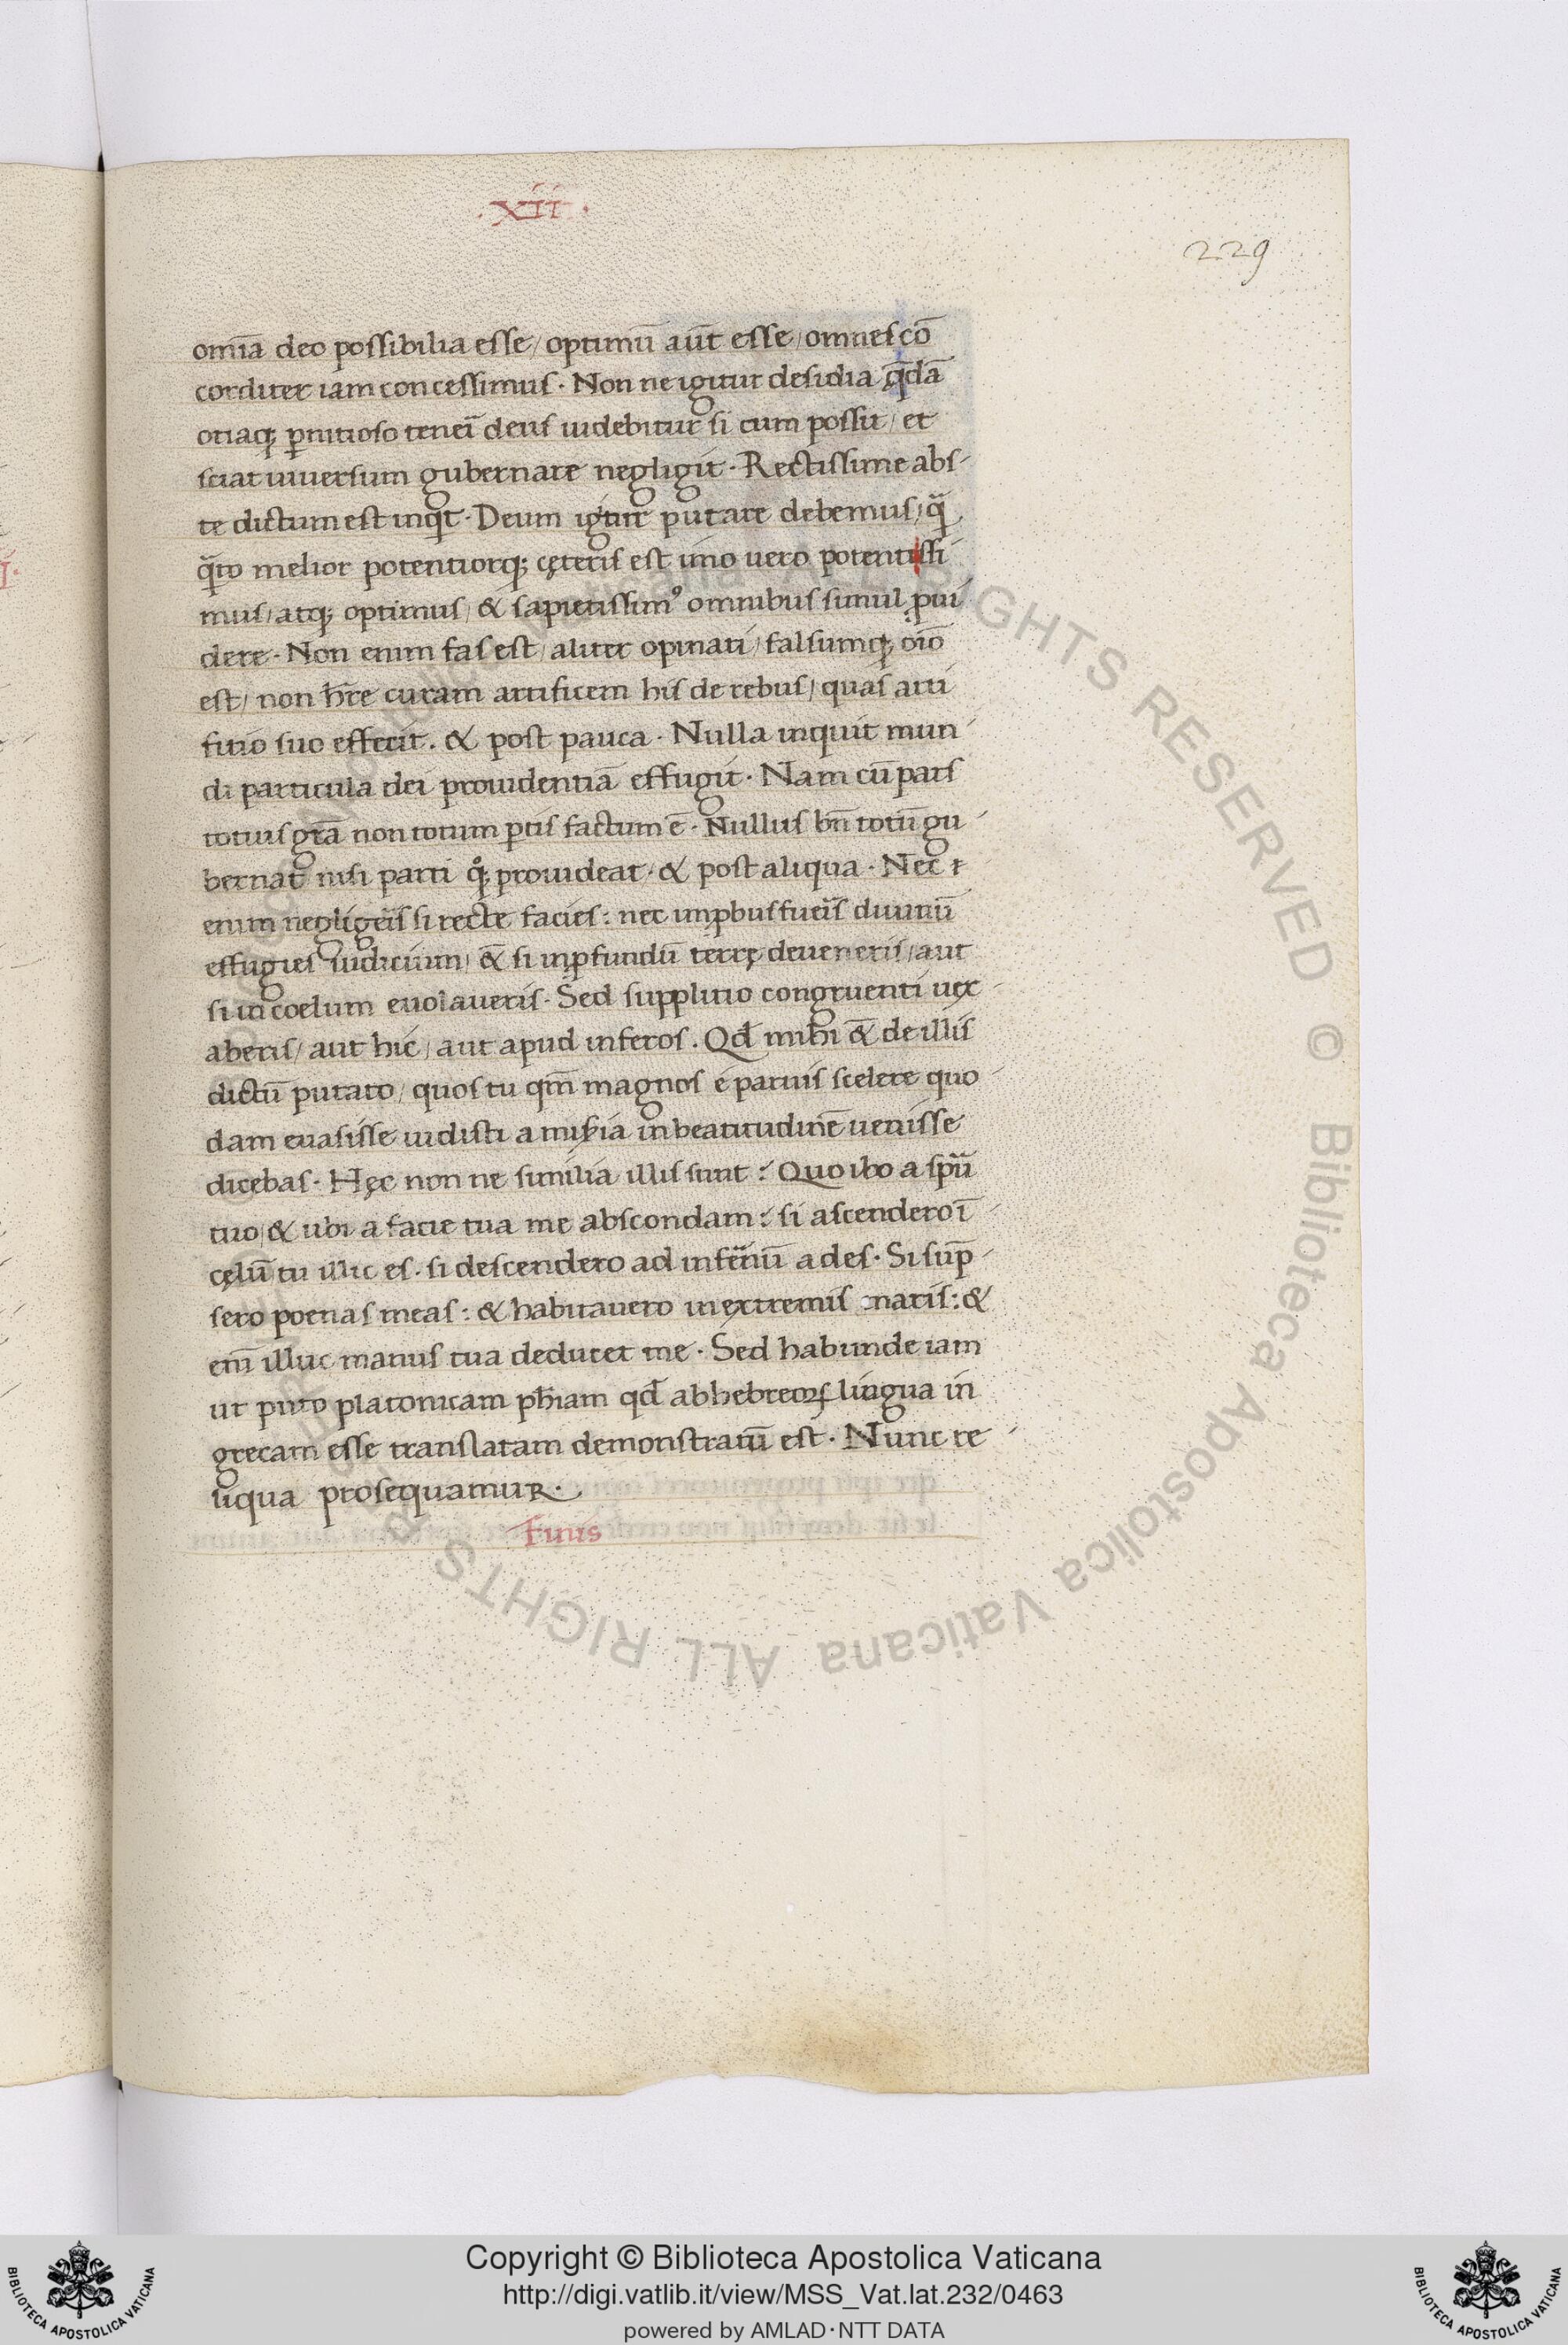 .xii.
229
omīa deo possibilia esse / optimū aūt esse / omnes cō
corditer iam concessimus. Non ne igitur desidia q̄dā
otiaq; ꝑnitioso teneī deus uidebitur si cum possit / et
sciat uiuersum gubernare negligit. Rectissime abs-
te dictum est inqͥt. Deum igitur putare debemus / qͣ
qͣto melior potentiorq; cęteris est imo uero potentissi
mus / atq; optimus / & sapiētissimꝰ omnibus simul ꝓui
dere. Non enim fas est / aliter opinari / falsumq; oīo
est / non hr̄e curam artificem his de rebus / quas arti
fitio suo effecit. & post pauca. Nulla inquit mun
di particula dei prouidentiā effugit. Nam cū pars
totius gr̄a non totum ꝑtis factum ē. Nullus bn̄ totū gu
bernat nisi parti qͦ; prouideat. & post aliqua. Nec
enim negligeris si recte facies: nec imꝓbus fueris diuinū
effugies iudicium / & si in ꝓfundū terrę deueneris / aut
si in coelum euolaueris. Sed supplitio congruenti uex
aberis / aut hic / aut apud inferos. Qd̄ mihi & de illis
dictū putato / quos tu qm̄ magnos e paruis scelere quo
dam euasisse uidisti a miẜia in beatitudinē uenisse
dicebas. Hęc non ne similia illis sunt: Quo ibo a spū
tuo / & ubi a facie tua me abscondam: si ascendero ī
cęlū tu illic es. si descendero ad infernū ades. Si sūp
sero poenas meas: & habitauero in extremis maris: &
enī illuc manus tua deducet me. Sed habunde iam
ut puto platonicam ph̄iam qd̄ ab hebreoꝝ lingua in
grecam esse translatam demonstratū est. Nunc re
liqua prosequamur.
Finis
Copyright © Biblioteca Apostolica Vaticana
http://digi.vatlib.it/view/MSS_Vat.lat.232/0463
powered by AMLAD·NTT DATA